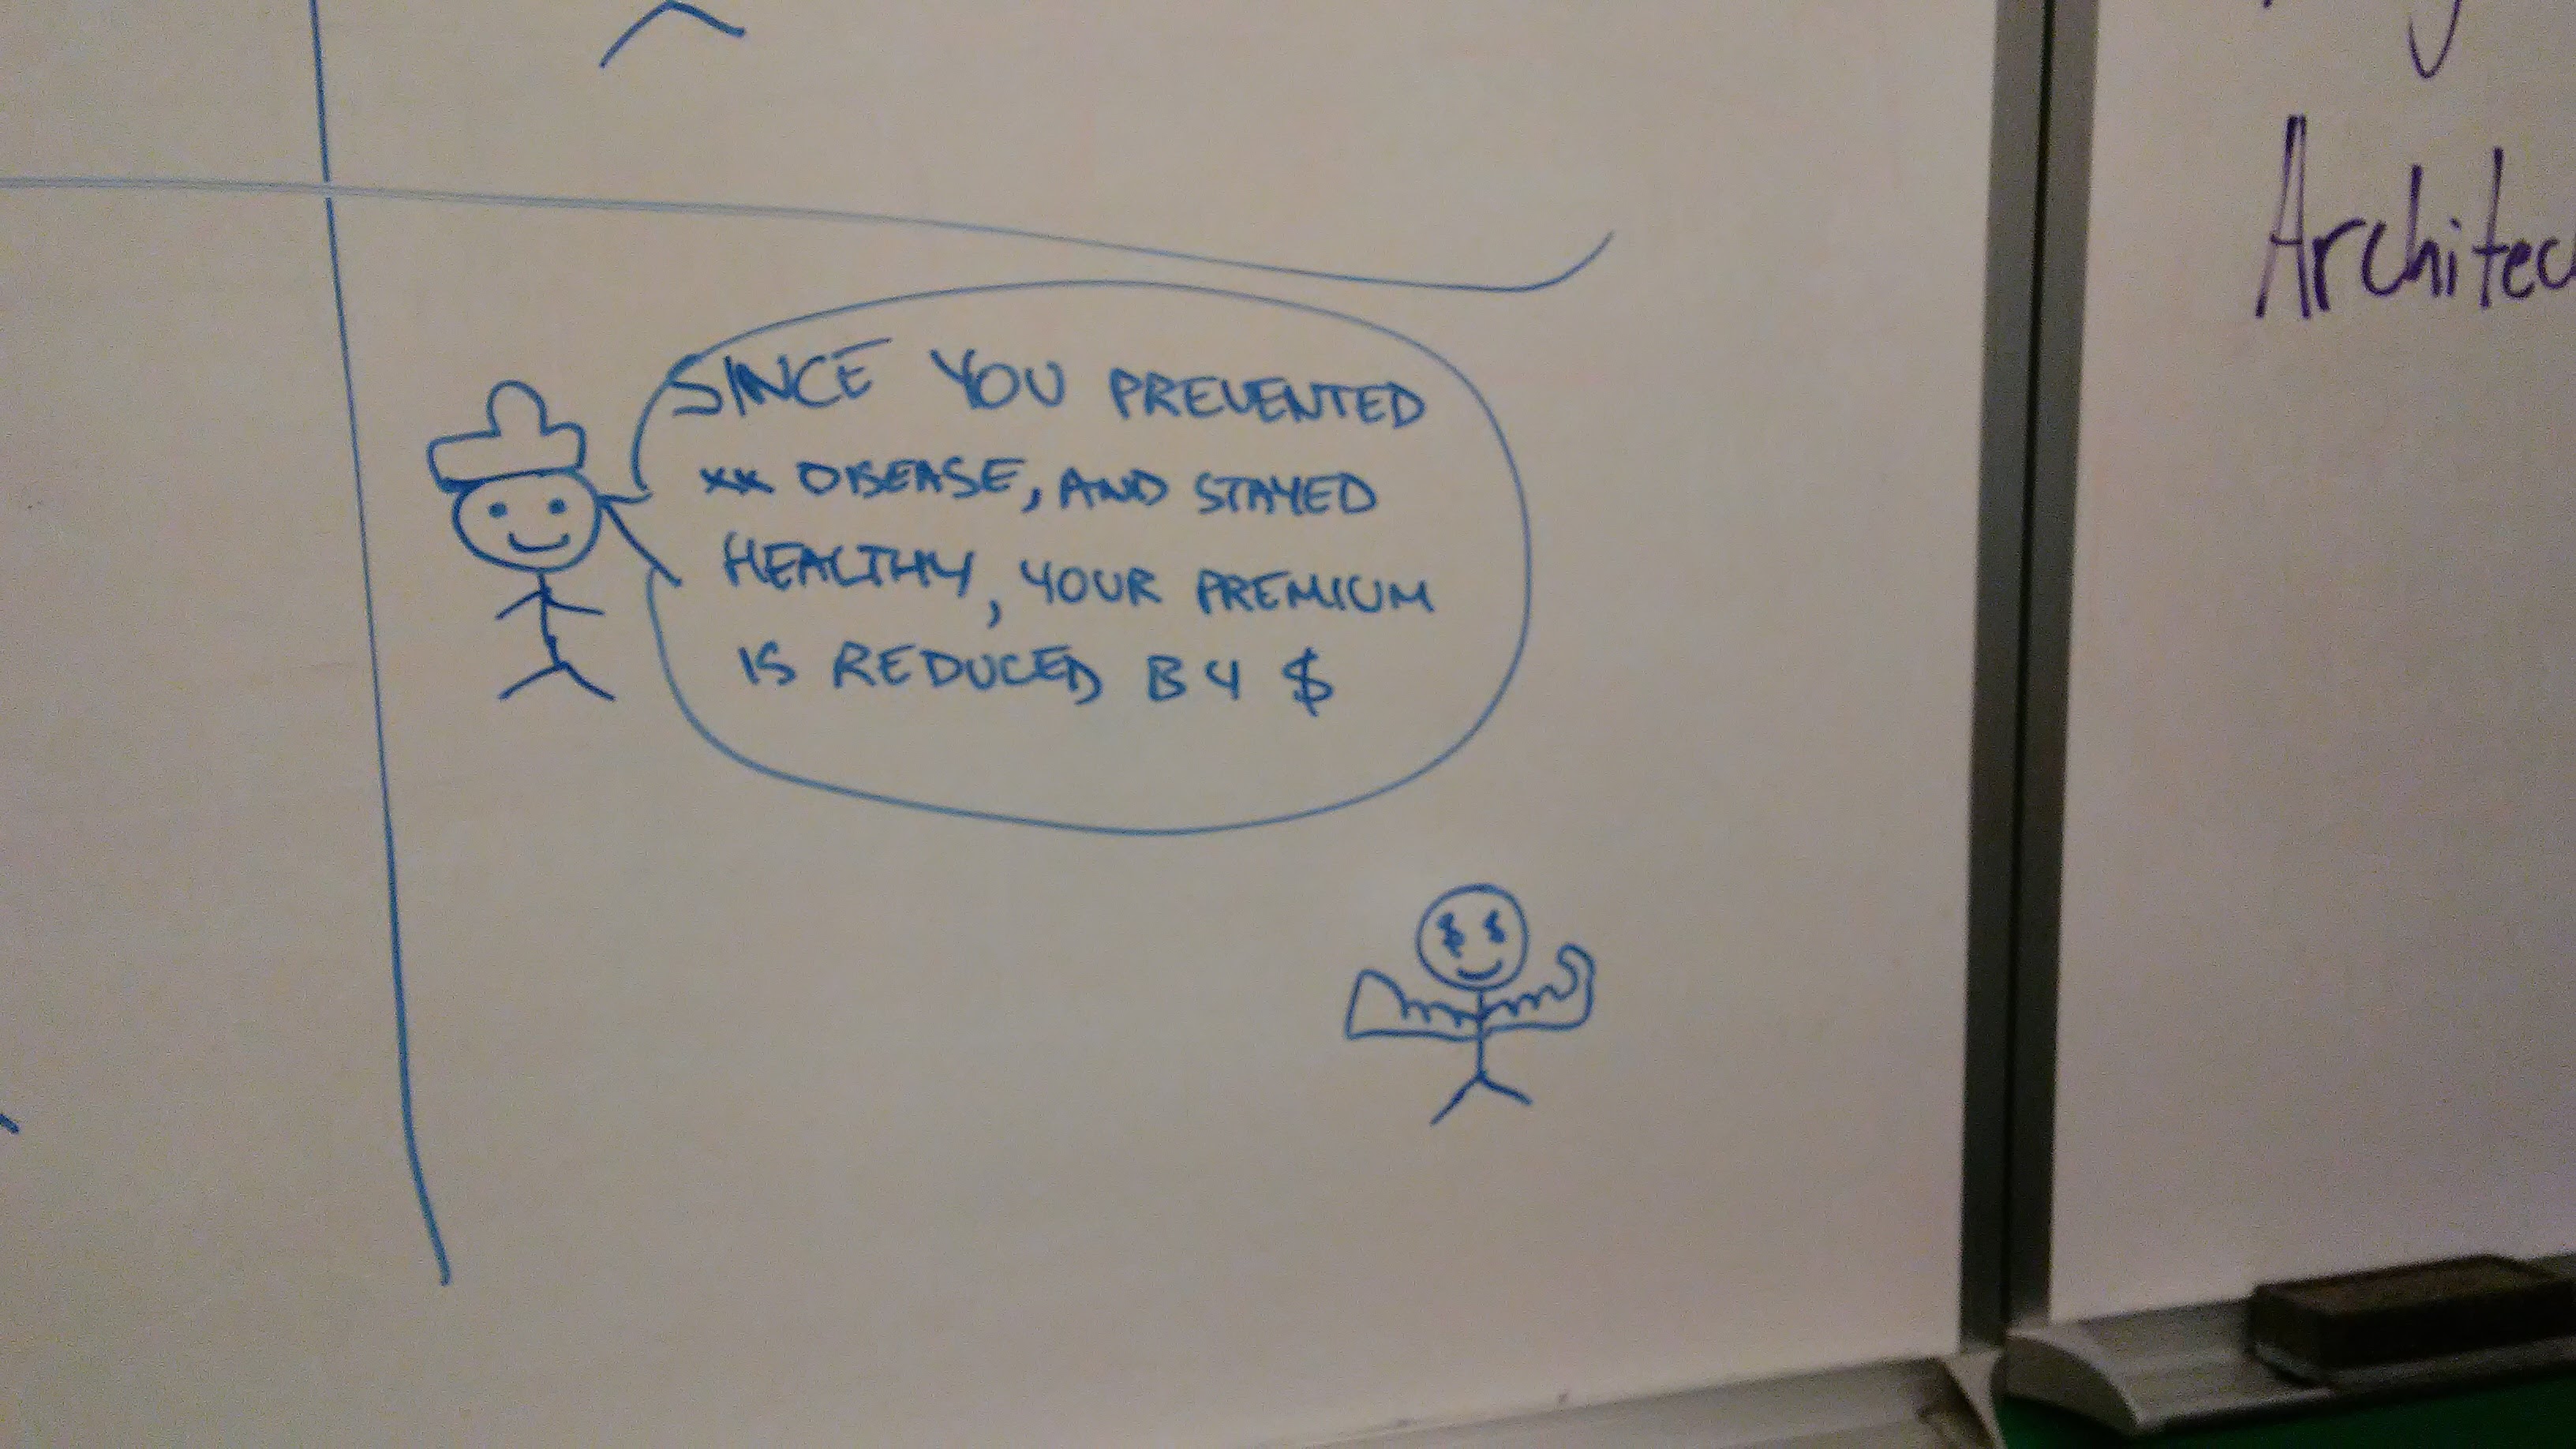 SINCE YOU PREVENTED
xx DISEASE, AND STAYED
HEALTHY, YOUR PREMIUM
IS REDUCED BY $
$ $
Architec